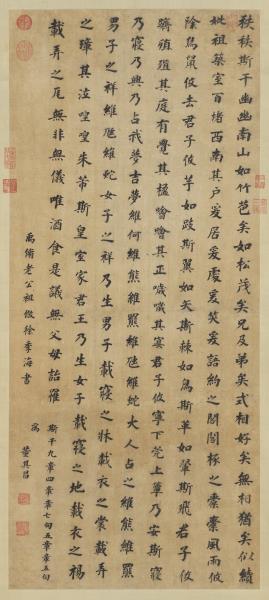 秩秩斯干幽幽南山如竹苞矣如松茂矣兄及弟矣式相好矣無相猶矣似續
妣祖築室百堵西南其戶爰居爰處爰笑爰語約之閣閣椓之橐橐風雨攸
除鳥鼠攸去君子攸芋如跂斯翼如矢斯棘如鳥斯革如翬斯飛君子攸
躋殖殖其庭有覺其楹噲噲其正噦噦其冥君子攸寧下莞上簟乃安斯寢
乃寢乃興乃占我夢吉夢維何維熊維羆維虺維蛇大人占之維熊維羆
男子之祥維虺維蛇女子之祥乃生男子載寢之牀載衣之裳載弄
之璋其泣喤喤朱芾斯皇室家君王乃生女子載寢之地載衣之裼
載弄之瓦無非無儀唯酒食是議無父母詒罹
斯干九章四章章七句五章章五句
爲
禹脩老公祖倣徐季海書
董其昌